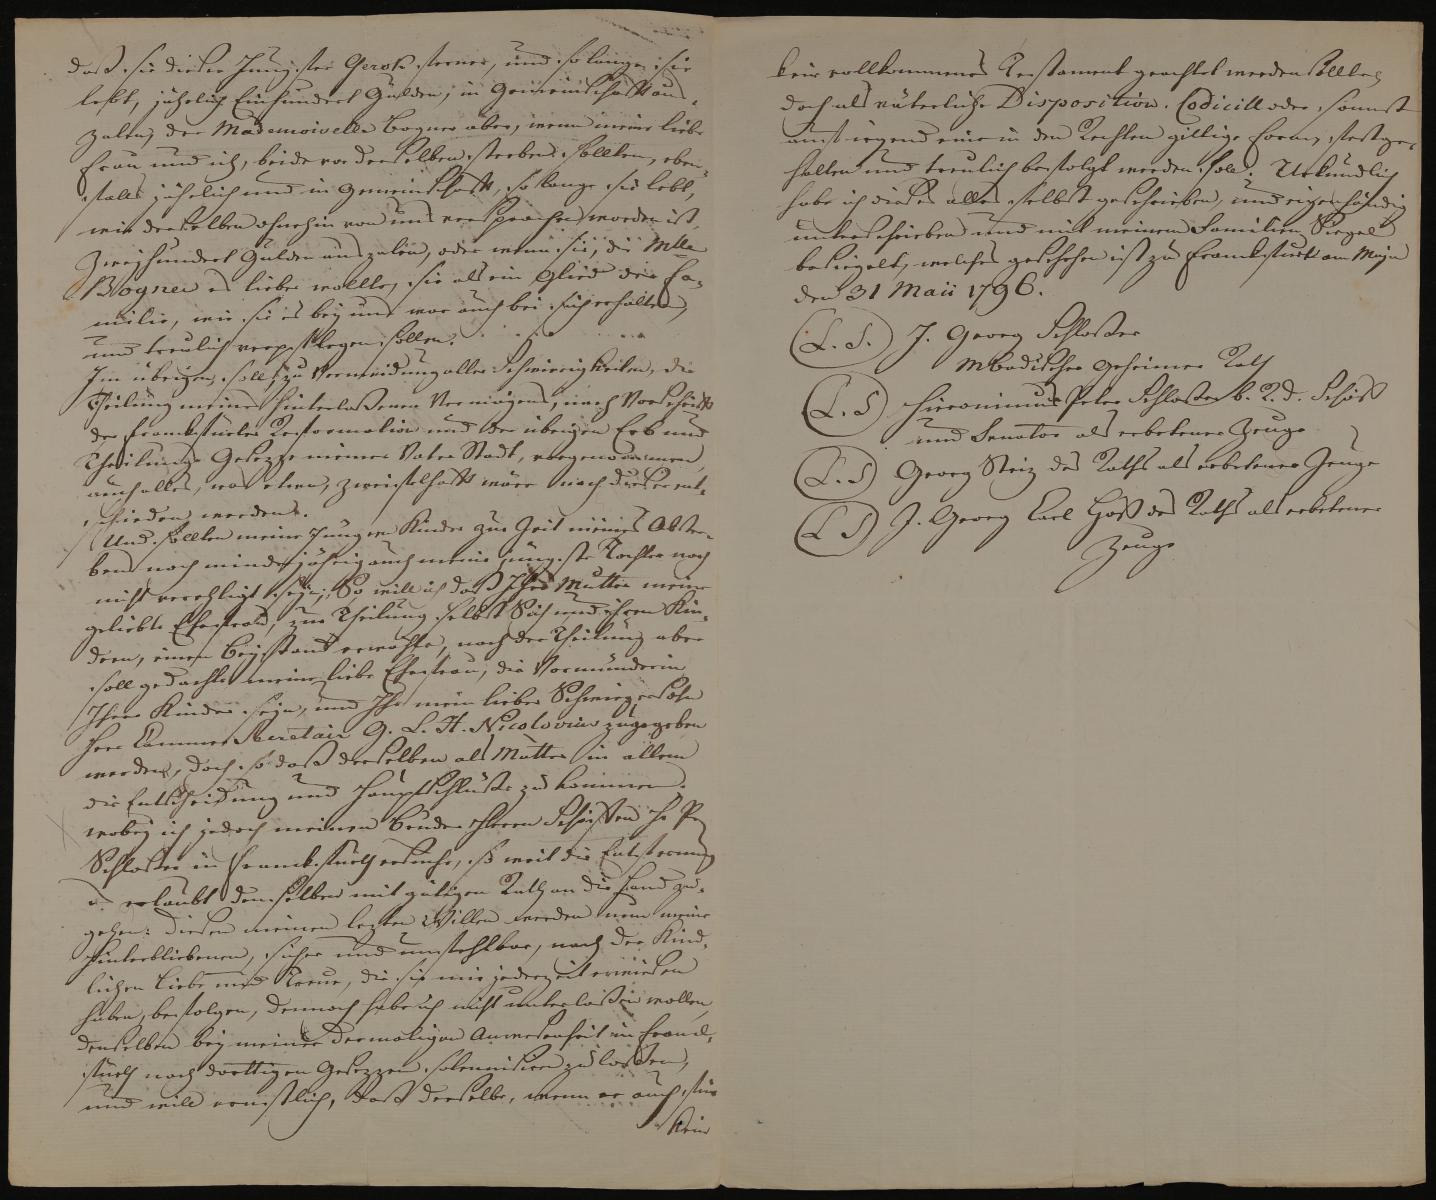 daß sie dieser Jungfer Gerok ferner, und so lange sie
lebt, jährlich Einhundert Gulden, in Gemeinschaft aus-
zalen, der Mademoiselle Bogner aber, wenn meine liebe
Frau und ich, beide vor derselben sterben sollten, eben-
falls jährlich und in Gemeinschaft, so lange sie lebt,
wie derselben ohnehin von uns versprochen worden ist,
Zweyhundert Gulden auszalen, oder wenn sie, die Mlle
Bogner es lieber wollte, sie als ein Glied der Fa-
milie, wie sie es bey uns war auch bei sich erhalten,
und treulich verpflegen sollen.
Im übrigen soll, zu Vermeidung aller Schwierigkeiten, die
Theilung meines hinterlaßenen Vermögens, nach Vorschrift
der Franckfurter Reformation und der übrigen Erb und
Theilungs Gesezze meiner Vater Stadt, vorgenommen,
auch alles, was etwa, zweifelhaft wäre nach dieser ent-
schieden werden.
Und sollten meine Jungen Kinder zur Zeit meines Abster-
bens noch minderjährig auch meine jüngste Tochter noch
nicht verehligt seyn; So will ich daß Ihre Mutter meine
geliebte Ehefrau, zur Theilung selbst Sich und ihren Kin-
dern, einen Beystand erwähle, nach der Theilung aber
soll gedachte meine liebe Ehefrau, die Vormünderin
Ihrer Kinder seyn, und Ihr mein lieber Schwiegersohn
Herr Cammer Secretair G. L. H. Nicolovius zugegeben
werden, doch so daß derselben als Mutter in allem
die Entscheidung und Hauptschlüße zu kommen.
wobey ich jedoch meinen Bruder Herrn Schöffen H. P.
Schlosser in Franckfurth ersuche, so weit die Entfernung
es erlaubt demselben mit gütigem Rath an die Hand zu
gehen: Diesen meinen lezten Willen werden nun meine
Hinterbliebenen, sicher und unfehlbar, nach der Kind-
lichen Liebe und Treue, die sie mir jederzeit erwiesen
haben, befolgen, dennoch habe ich nicht unterlaßen wollen,
denselben bey meiner dermaligen Anwesenheit in Franck-
furth nach dortigen Gesezzen solennisiren zu laßen,
und will ernstlich, daß derselbe, wenn er auch für
kein
kein vollkommenes Testament geachtet werden sollte,
doch als väterliche Disposition, Codicill oder sonst
auf irgend eine in den Rechten gültige Form, fest ge-
halten und treulich befolgt werden solle. Urkundlich
habe ich dieses alles selbst geschrieben, und eigenhändig
unterschrieben und mit meinem Familien Siegel
besiegelt, welches geschehen ist zu Franckfurth am Mayn
den 31 Maii 1796.
(L. S.) J. Georg Schlosser
MBadischer geheimer Rath
(L. S) Hieronimus Peter Schlosser b. R. d. Schöff
und Senator als erbetener Zeuge
(L. S) Georg Steiz des Raths als erbetener Zeuge
(L S) J. Georg Carl Heß des Raths als erbetener
Zeuge